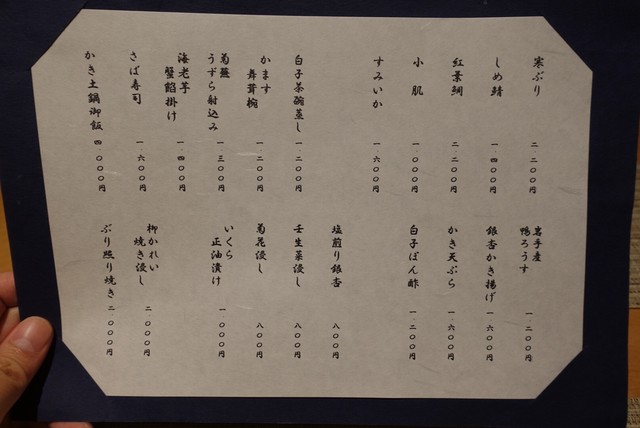 寒ぶり 二.二〇〇円
しめ鯖 一.四〇〇円
紅葉鯛 二.二〇〇円
小肌 一.〇〇〇円
すみいか 一.六〇〇円
白子茶碗蒸し 一.二〇〇円
かます
舞茸椀 一.二〇〇円
菊蕪
うずら射込み 一.三〇〇円
海老芋
蟹餡掛け 一.四〇〇円
さば寿司 一.六〇〇円
かき土鍋御飯 四.〇〇〇円
岩手産
鴨ろうす 一.二〇〇円
銀杏かき揚げ 一.六〇〇円
かき天ぷら 一.六〇〇円
白子ぽん酢 一.二〇〇円
塩煎り銀杏 八〇〇円
壬生菜浸し 八〇〇円
菊花浸し 八〇〇円
いくら
正油漬け 一.〇〇〇円
柳かれい
焼き浸し 二.〇〇〇円
ぶり照り焼き 二.〇〇〇円